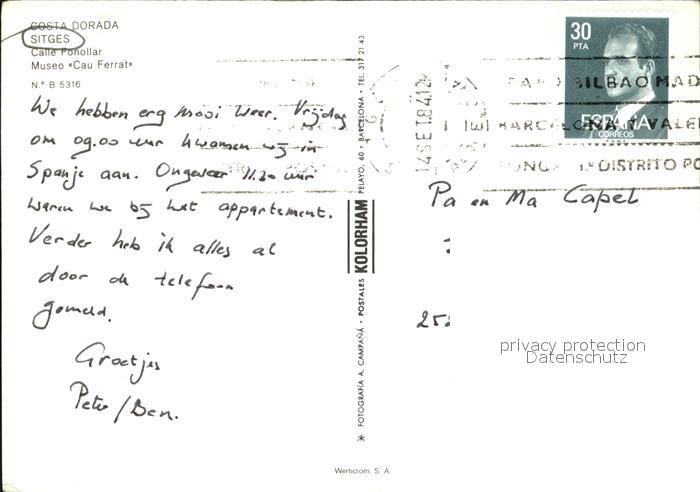 COSTA DORADA
SITGES
Calle Fonollar
Museo «Cau Ferrat»
N.º B 5316
We hebben erg mooi weer. Vrijdag
om 09.00 uur kwamen wij in
Spanje aan. Ongeveer 11.30 uur
waren we bij het appartement.
Verder heb ik alles al
door de telefoon
gemeld.
Groetjes
Peter/Ben.
FOTOGRAFIA A. CAMPAÑÁ - POSTALES KOLORHAM PELAYO, 60 - BARCELONA - TEL. 317 21 43
30
PTA
ESPAÑA
CORREOS
14 SET. 84 12
BILBAO MAD
BARCELONA VALE
DISTRITO PO
Pa en Ma Capel
25
privacy protection
Datenschutz
Werticrom, S. A.